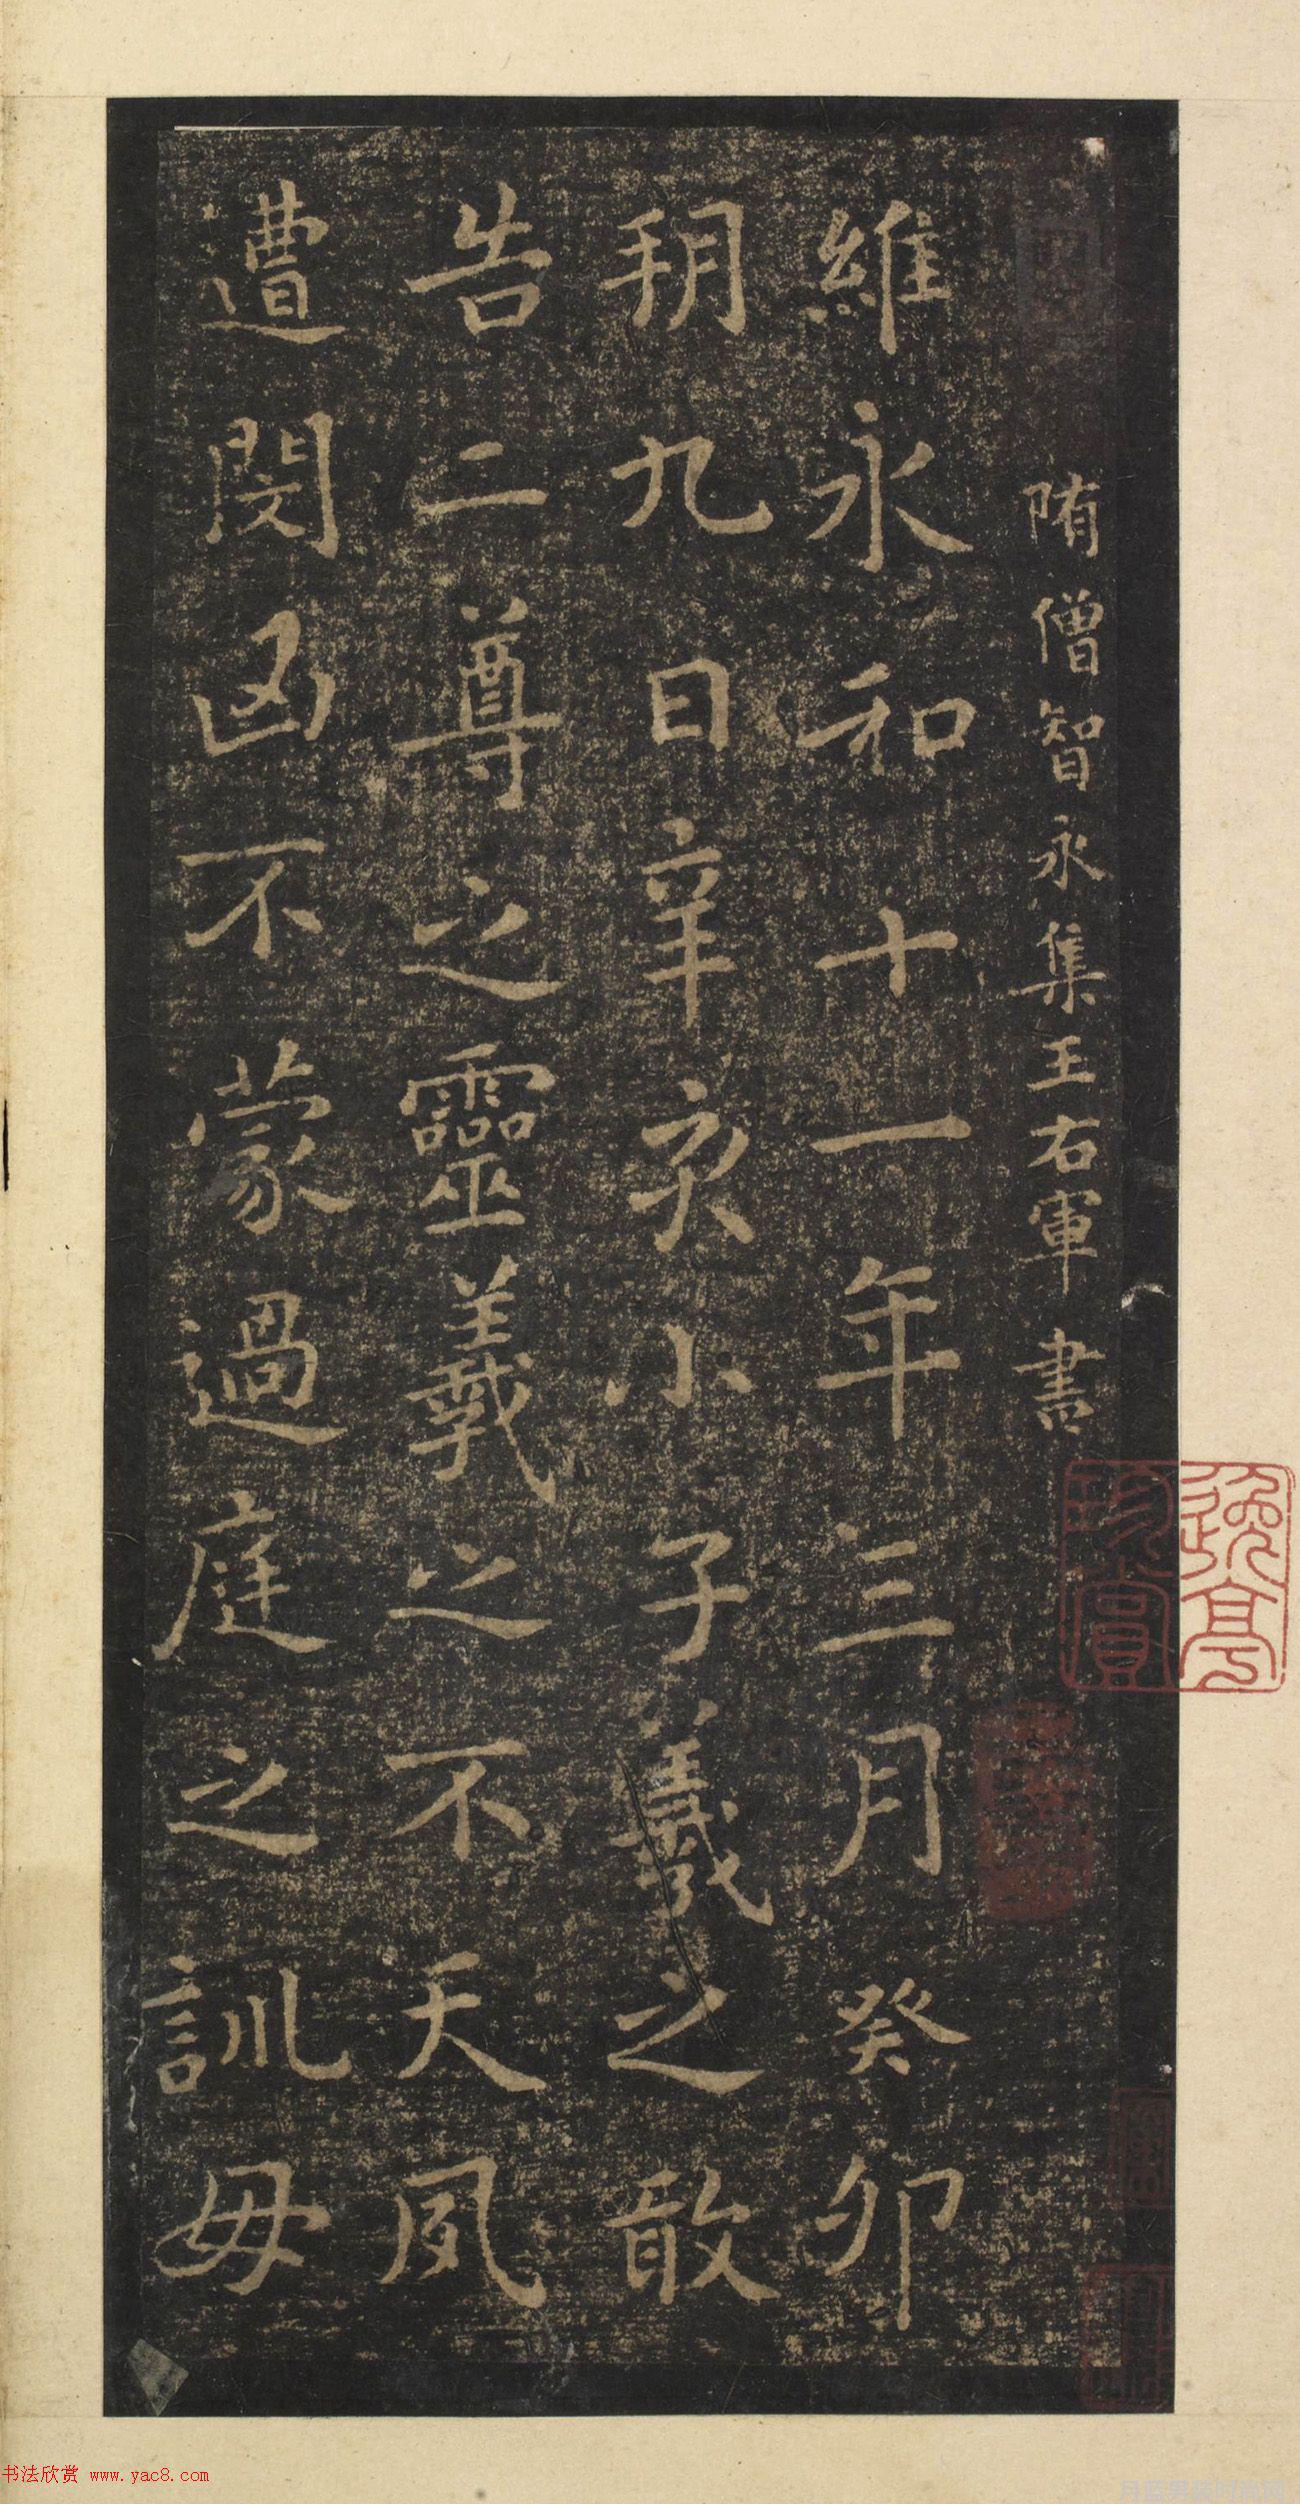 隋僧智永集王右軍書
維永和十一年三月癸卯
朔九日辛亥小子羲之敢
告二尊之靈羲之不天夙
遭閔凶不蒙過庭之訓毋
珍賞
书法欣赏 www.yac8.com